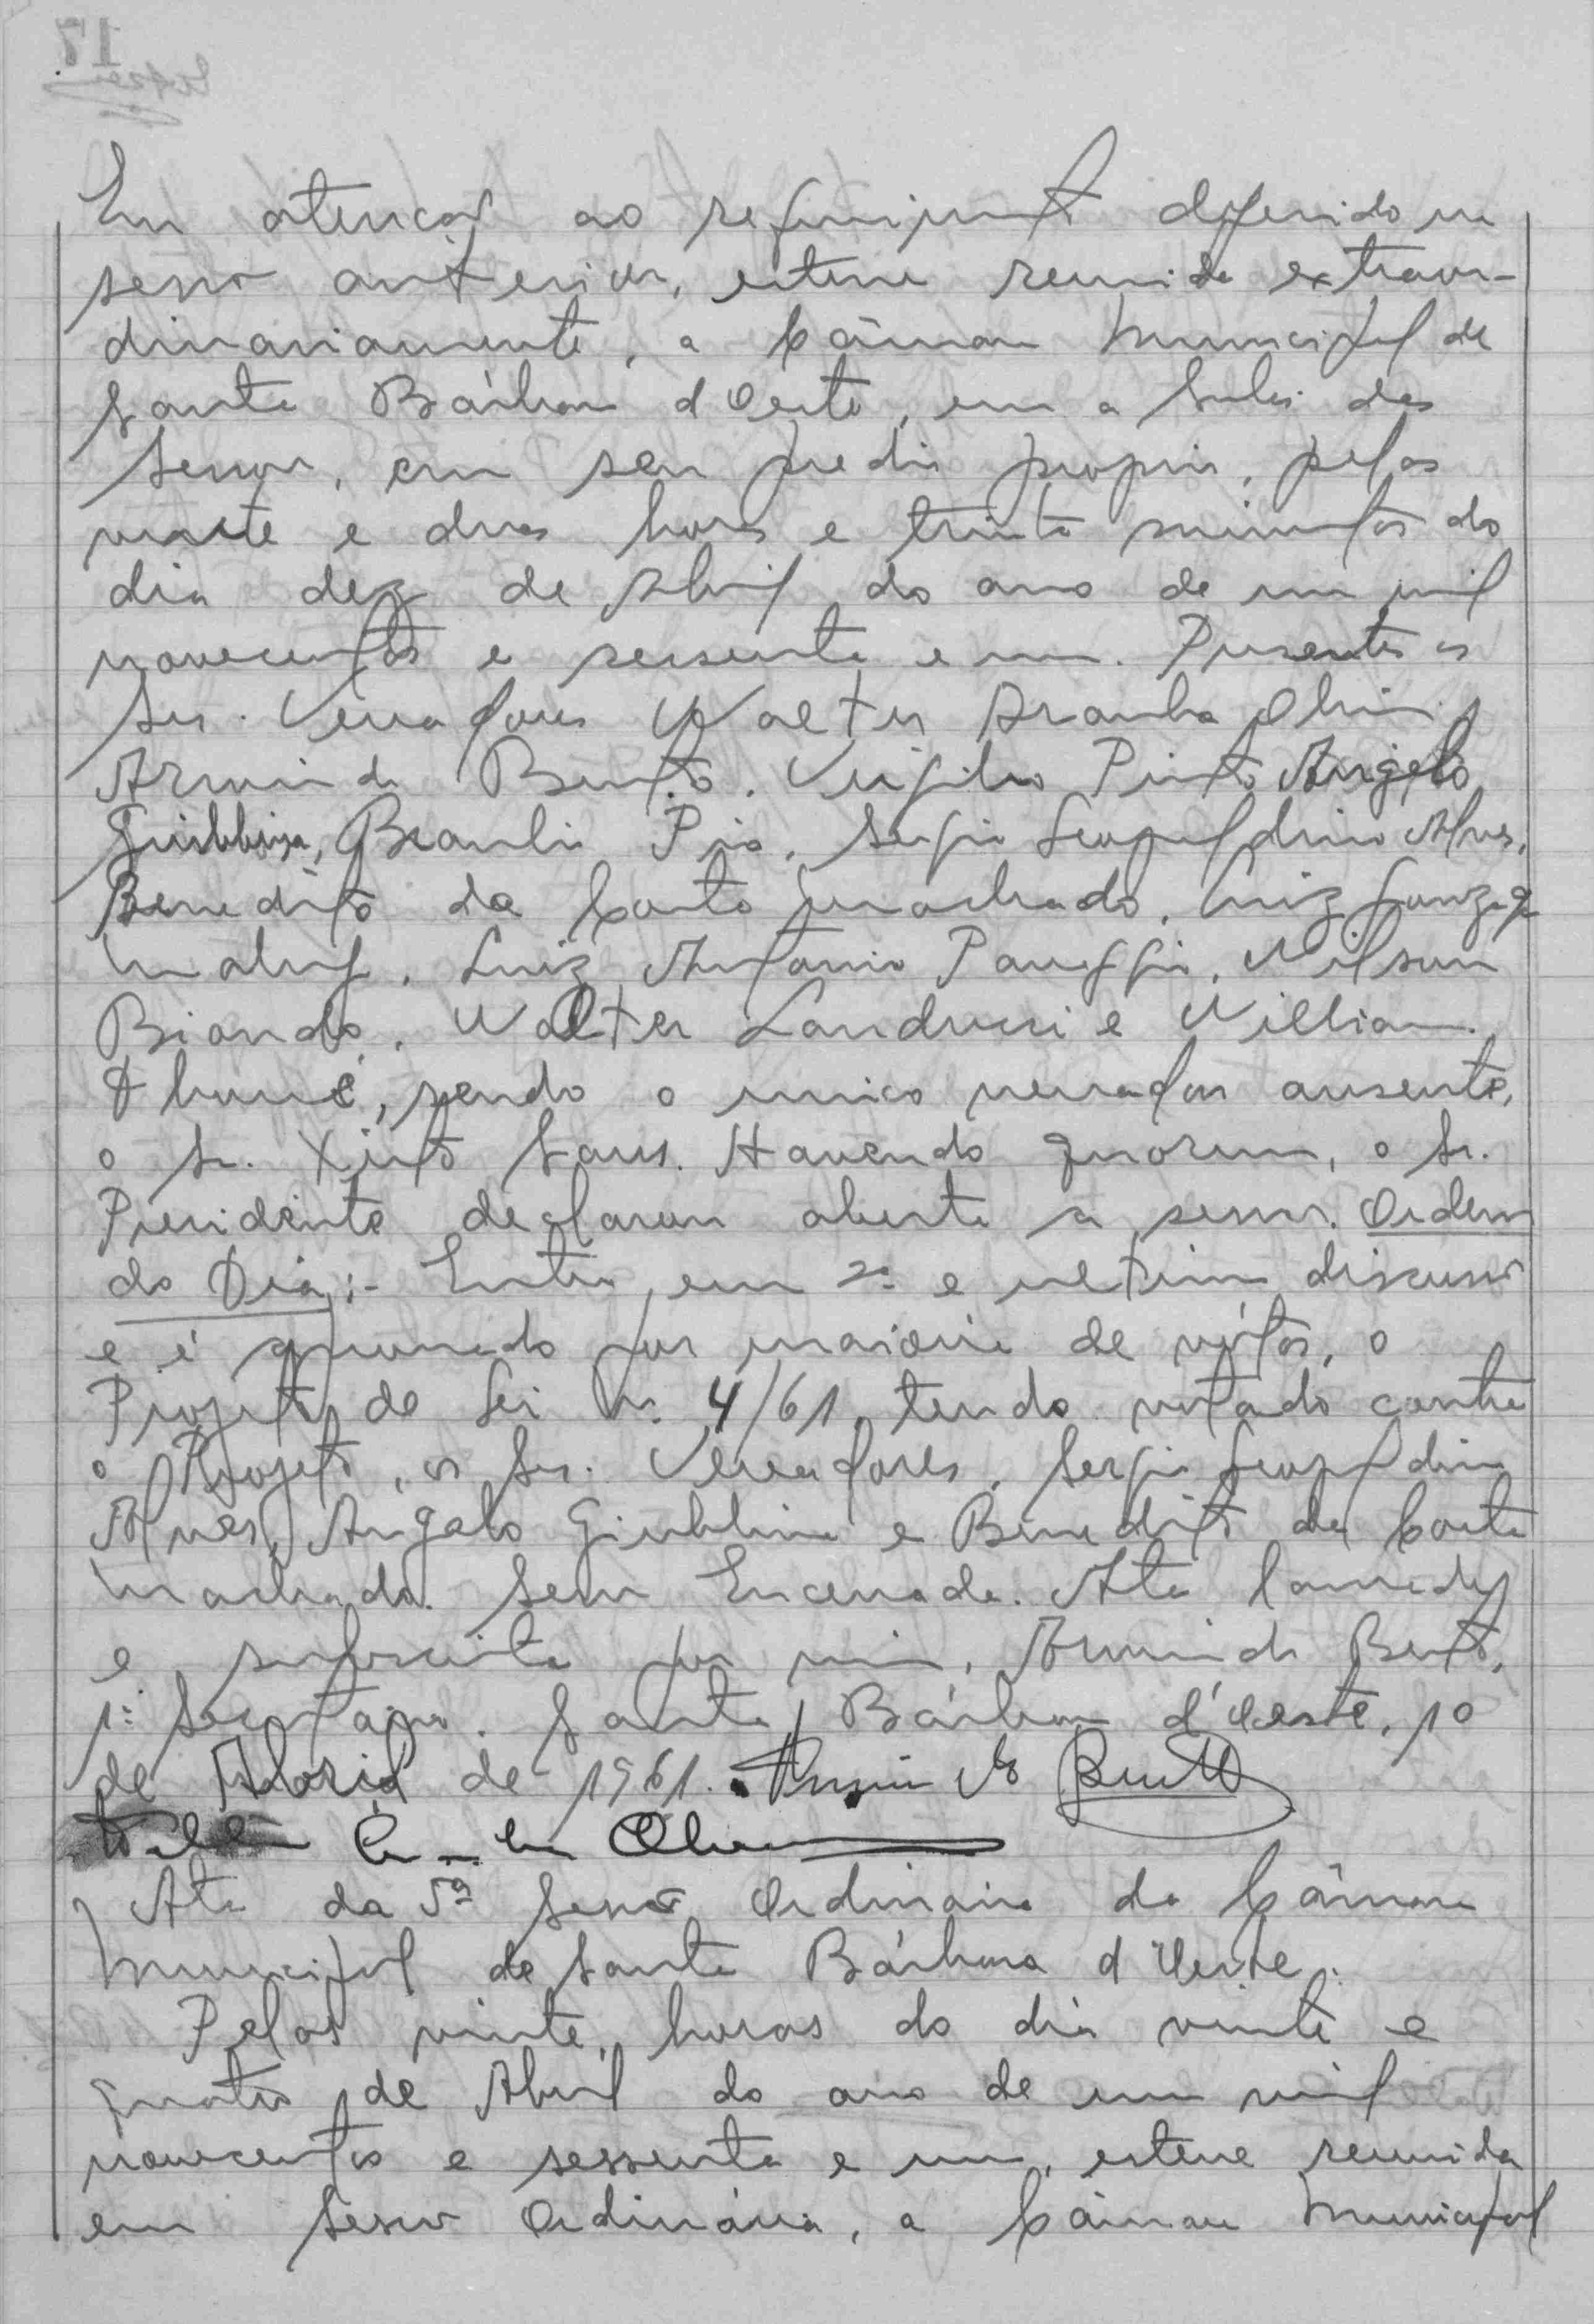 Em atenção ao requerimento deferido na
sessão anterior, esteve reunida extraor-
dinariamente, a Câmara Municipal de
Santa Bárbara d'Oeste, em a Sala das
Sessões, em seu predio proprio, pelas
vinte e duas horas e trinta minutos do
dia dez de Abril do ano de um mil
novecentos e sessenta e um. Presentes os
Srs. Vereadores Walter Aranha Olivei
Armindo Bento, Virgilio Pinto, Angelo
Giubbina, Braulio Pio, Sergio Leopoldino Alves,
Benedito da Costa Machado, Luiz Gonzaga
Luiz Antonio Panaggio, Nilson
Biondo, Walter Landucci e Willian
sendo o unico vereador ausente,
o Sr. Xisto Saes. Havendo quorum, o Sr.
Presidente declarou aberta a sessão. Ordem
do Dia:- Entra em 2ª e ultima discussão
e é aprovado por maioria de votos, o
Projeto de Lei Nr. 4/61, tendo votado contra
o Projeto, os Srs. Vereadores, Sergio Leopoldino
Alves, Angelo Giubbina e Benedito da Costa
Machado. Sessão Encerrada. Ata lavrada
e subscrita por mim, Armindo Bento,
1º Secretario. Santa Bárbara d'Oeste, 10
de Abril de 1961. Armindo Bento
Ata da 5ª Sessão Ordinaria da Câmara
Municipal de Santa Bárbara d'Oeste.
Pelas vinte horas do dia vinte e
quatro de Abril do ano de um mil
novecentos e sessenta e um, esteve reunida
em Sessão Ordinária, a Câmara Municipal